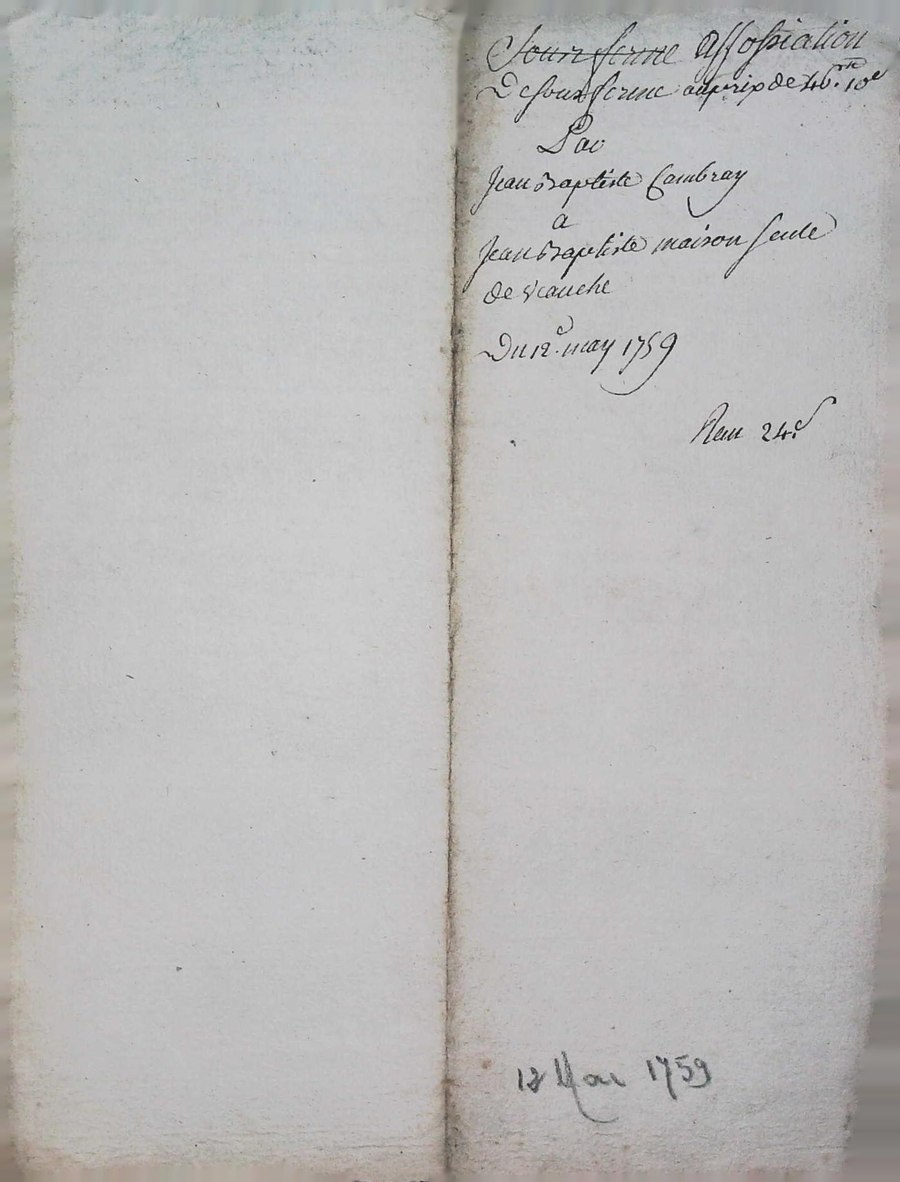 Sousferme Assossiation
De sousferme au prix de 46.tt 10s
Par
Jean Baptiste Cambray
a
Jean Baptiste maison seule
de
Du 12.e may 1759
24.s
12 Mai 1759